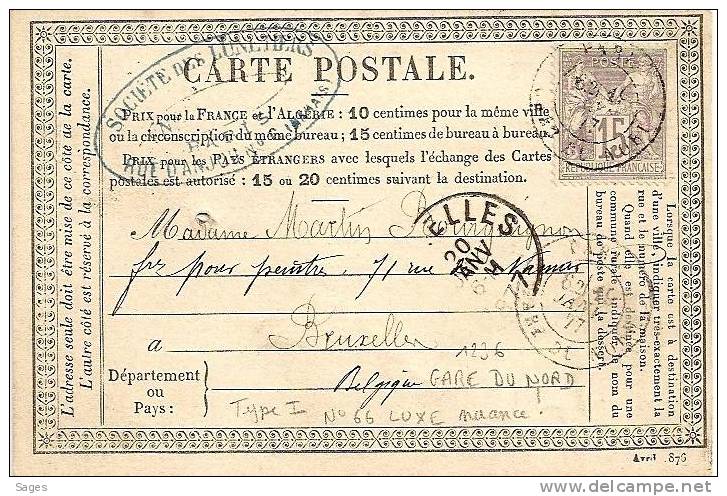 SOCIÉTÉ DES LUNETIERS
PARIS
CARTE POSTALE.
PRIX pour la FRANCE et l'ALGÉRIE : 10 centimes pour la même ville
ou la circonscription du même bureau ; 15 centimes de bureau à bureau.
PRIX pour les PAYS ÉTRANGERS avec lesquels l'échange des Cartes
postales est autorisé : 15 ou 20 centimes suivant la destination.
POSTE
15
REPUBLIQUE FRANÇAISE
ELLES
20
JANV
Madame Martin Bourguignon
71 rue Namur
a Bruxelles
Belgique
1236
GARE DU NORD
Type I N° 66 LUXE nuance.
Département
ou
Pays :
L'adresse seule doit être mise de ce côté de la carte.
L'autre côté est réservé à la correspondance.
Lorsque la carte est à destination
d'une ville, indiquer très-exactement la
rue et le numéro de la maison.
Quand elle est destinée pour une
commune rurale, indiquer le nom du
bureau de poste qui la dessert.
Avril 876
Sages
delcampe.net